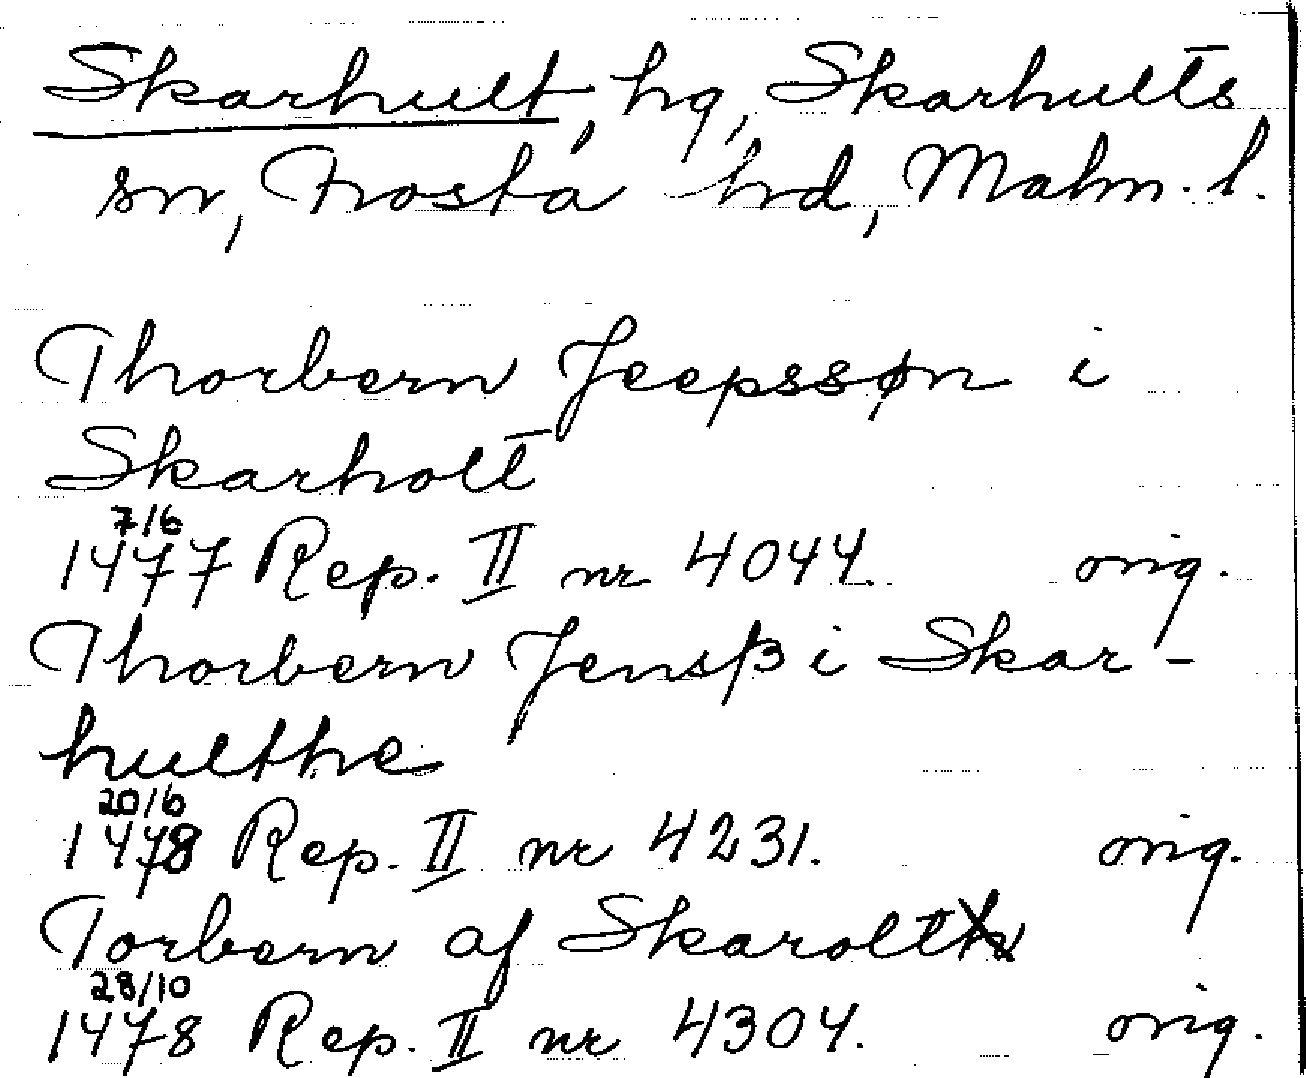 Skarhult, hg, Skarhults
sn, Frosta hrd, Malm. l.
Thorbern Jeepssøn i
Skarholt
7/6
1477 Rep. II nr 4044. orig.
Thorbern Jensß i Skar-
hulthe
20/6
1478 Rep. II nr 4231. orig.
Torbern af Skarolt
28/10
1478 Rep. II nr 4304. orig.